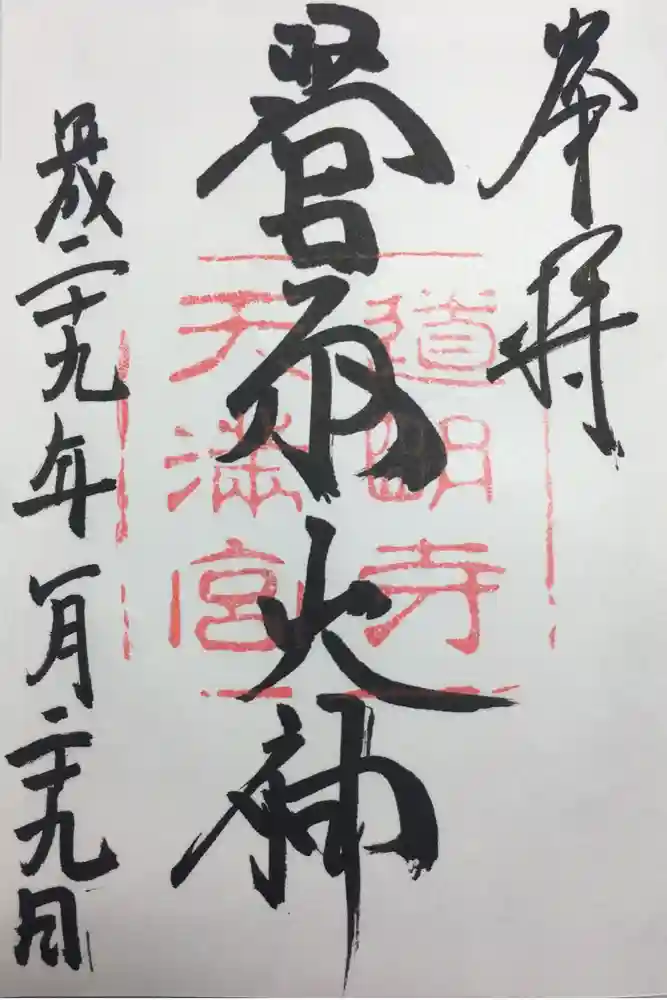 奉拝
菅原大神
道明寺
天満宮
平成二十九年一月二十九日